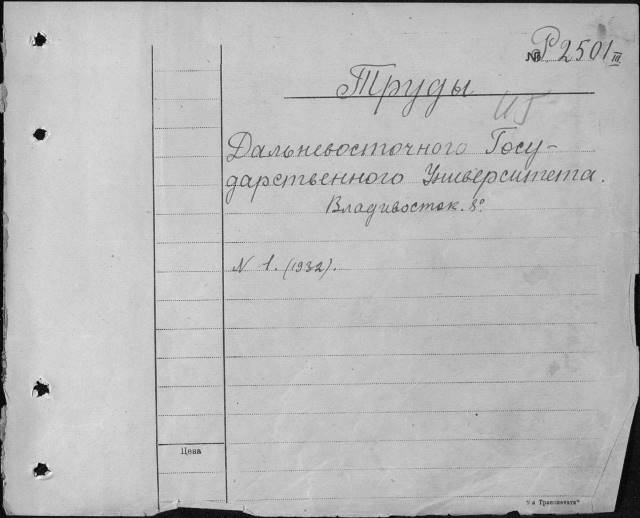 № Р2501 III
Труды
Дальневосточного Госу-
дарственного Университета.
Владивосток. 8°.
N 1. (1932).
Цена
"я Транспечати"